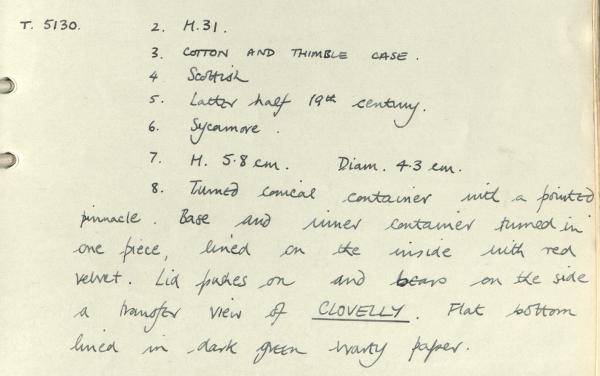 T. 5130. 2. H.31.
3. COTTON AND THIMBLE CASE.
4 Scottish
5. Latter half 19th century.
6. Sycamore.
7. H. 5.8 cm. Diam. 4.3 cm.
8. Turned conical container with a pointed
pinnacle. Base and inner container turned in
one piece, lined on the inside with red
velvet. Lid pushes on and bears on the side
a transfer view of CLOVELLY. Flat bottom
lined in dark green warty paper.